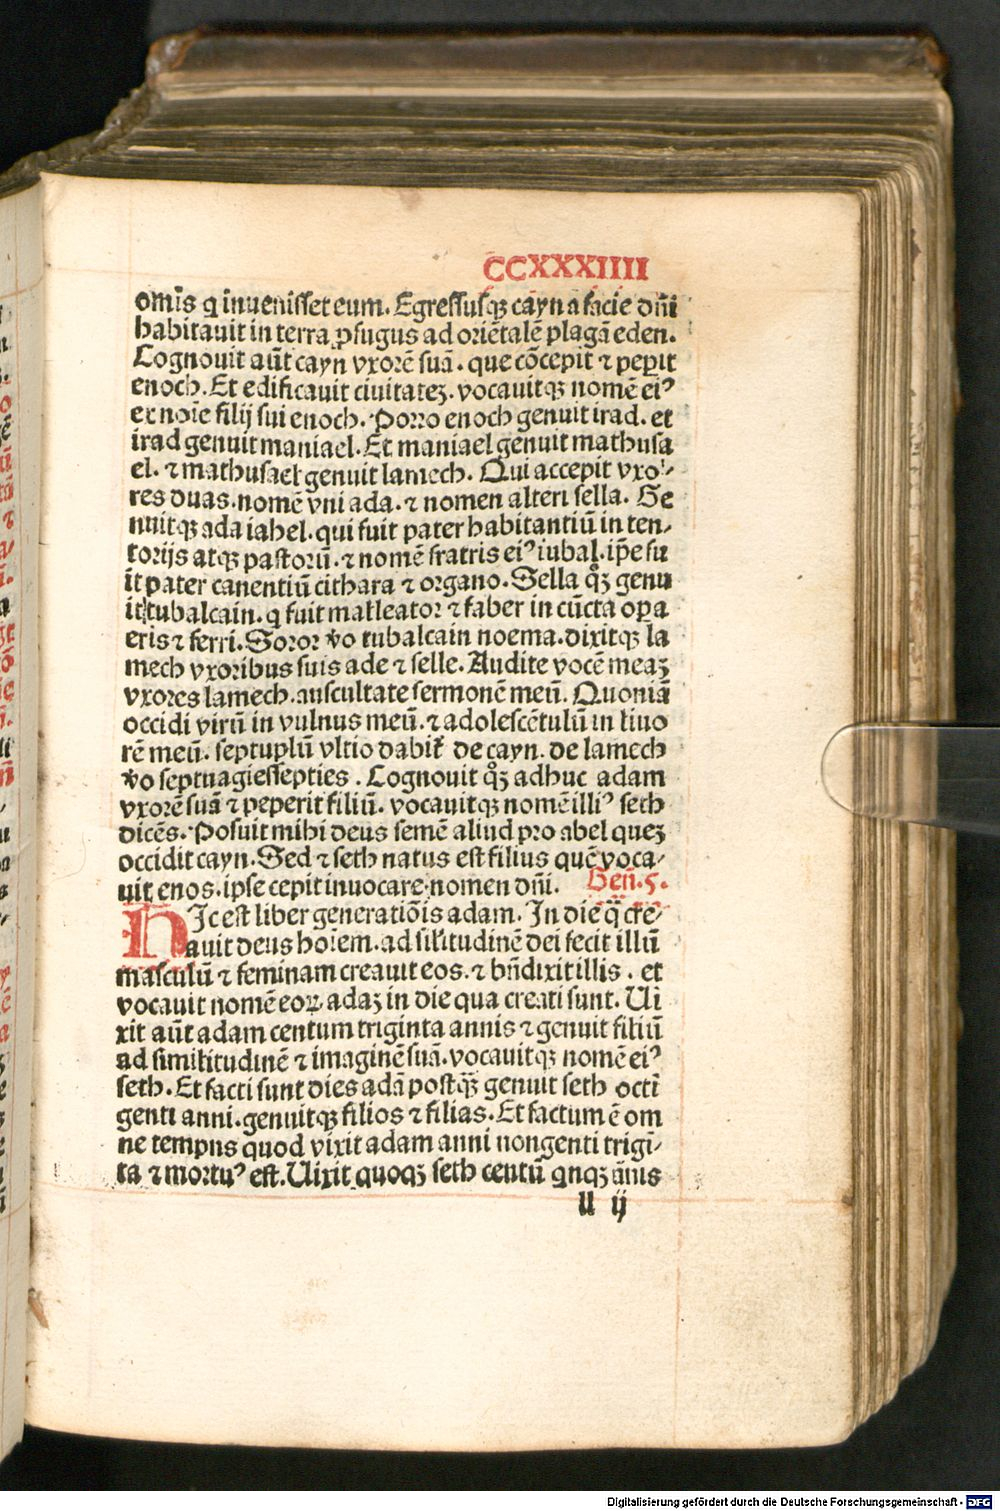 CCXXXIIII
omīs q inuenisset eum. Egressusqꝫ cayn a facie dn̄i
habitauit in terra ꝓfugus ad oriētalē plagā eden.
Cognouit aūt cayn vxorē suā. que cōcepit ⁊ peꝑit
enoch. Et edificauit ciuitateꝫ. vocauitqꝫ nomē eiꝰ
ex noīe filij sui enoch. Porro enoch genuit irad. et
irad genuit maniael. Et maniael genuit mathusa
el. ⁊ mathusael genuit lamech. Qui accepit vxo-
res duas. nomē vni ada. ⁊ nomen alteri sella. Ge
nuitqꝫ ada iahel. qui fuit pater habitantiū in ten-
torijs atqꝫ pastorū. ⁊ nomē fratris eiꝰ iubal. ip̄e fu
it pater canentiū cithara ⁊ organo. Sella qͦꝫ genu
it tubalcain. q fuit malleator ⁊ faber in cūcta oꝑa
eris ⁊ ferri. Soror v̄o tubalcain noema. dixitqꝫ la
mech vxoribus suis ade ⁊ selle. Audite vocē meaꝫ
vxores lamech. auscultate sermonē meū. Quoniā
occidi virū in vulnus meū. ⁊ adolescētulū in liuo
rē meū. septuplū vltio dabit̄ de cayn. de lamech
v̄o septuagiessepties. Cognouit qͦꝫ adhuc adam
vxorē suā ⁊ peperit filiū. vocauitqꝫ nomē illiꝰ seth
dicēs. Posuit mihi deus semē aliud pro abel queꝫ
occidit cayn. Sed ⁊ seth natus est filius quē voca-
uit enos. ipse cepit inuocare nomen dn̄i. Gen̄. 5.
HIc est liber generatiōis adam. In die q̄ cre-
auit deus hoīem. ad sil̄itudinē dei fecit illū
masculū ⁊ feminam creauit eos. ⁊ bn̄dixit illis. et
vocauit nomē eoꝝ adaꝫ in die qua creati sunt. Ui
xit aūt adam centum triginta annis ⁊ genuit filiū
ad similitudinē ⁊ imaginē suā. vocauitqꝫ nomē eiꝰ
seth. Et facti sunt dies adā postqꝫ̄ genuit seth octi
genti anni. genuitqꝫ filios ⁊ filias. Et factum ē om
ne tempus quod vixit adam anni nongenti trigi-
ta ⁊ mortuꝰ est. Uixit quoqꝫ seth centū qnqꝫ ānis
u ij
Digitalisierung gefördert durch die Deutsche Forschungsgemeinschaft - DFG